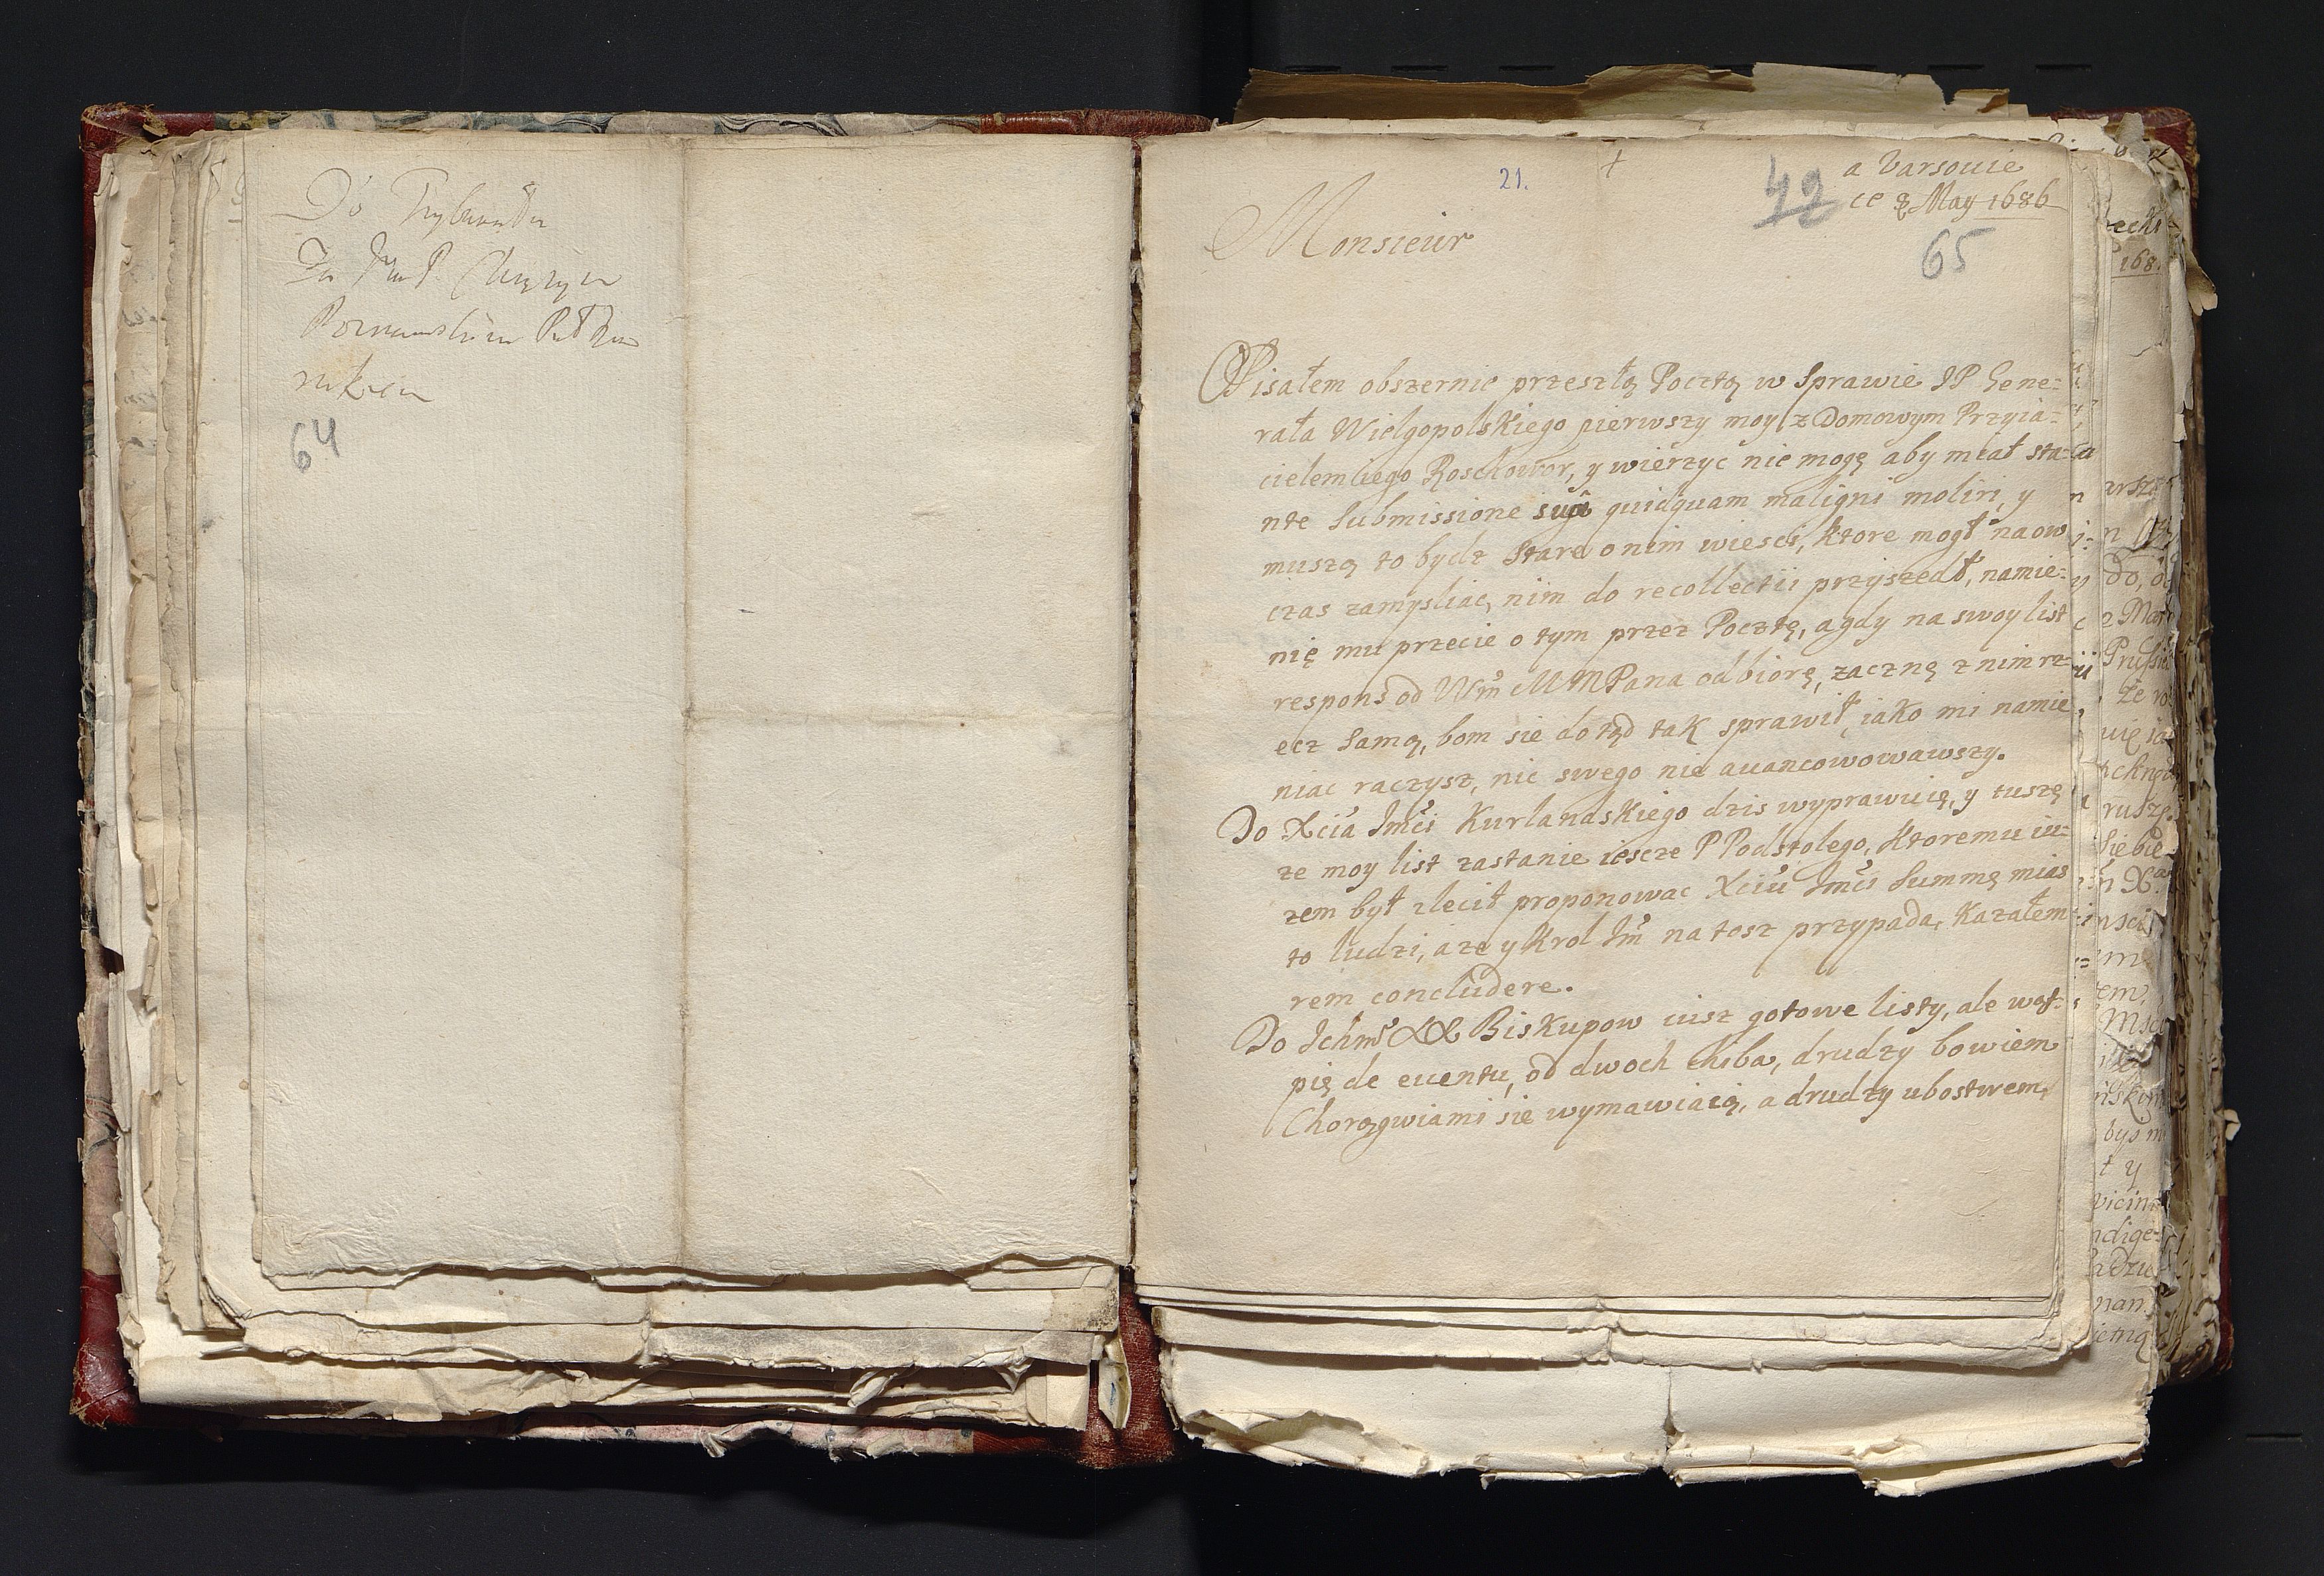 Do Trybunału
Do
64
21.
42
a Varsouie
ce 8 May 1686
65
Monsieur
Pisałem obszernie przeszłą Pocztą w Sprawie JP Gene=
rała Wielgopolskiego pierwszy moy z Domowym Przyia=
cielem iego Roschowor, y wierzyc nie mogę aby miał sta=
nte Submissione suâ quidquam maligni moliri, y
muszą to bydz Stare o nim wiesci, ktore mogł na ow
czas zamysliac, nim do recollectii przyszedł, namie=
nię mu przecie o tym przez Pocztę, a gdy na swoy list
respons od Wm̃ M M Pana odbiorę, zacznę z nim rz=
ecz Samą, bom sie dotąd tak sprawił iako mi namie
niac raczysz, nic swego nie auancowowawszy.
Do Xcia Jmći Kurlandskiego dzis wyprawuię, y tuszę
ze moy list zastanie iescze P Podstolego, Ktoremu iu=
zem był zlecił proponowac Xciu Jmći Summę mias
to ludzi, a ze y Krol Jm̃ na tosz przypada, Kazałem
rem concludere.
Do Jchm̃ XX Biskupow iusz gotowe listy, ale wąt=
pię de euentu, od dwoch chiba, drudzy bowiem
Chorągwiami sie wymawiaią, a drudzy ubostwem,